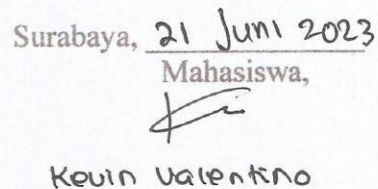 Surabaya, 21 Juni 2023
Mahasiswa,
Kevin Valentino